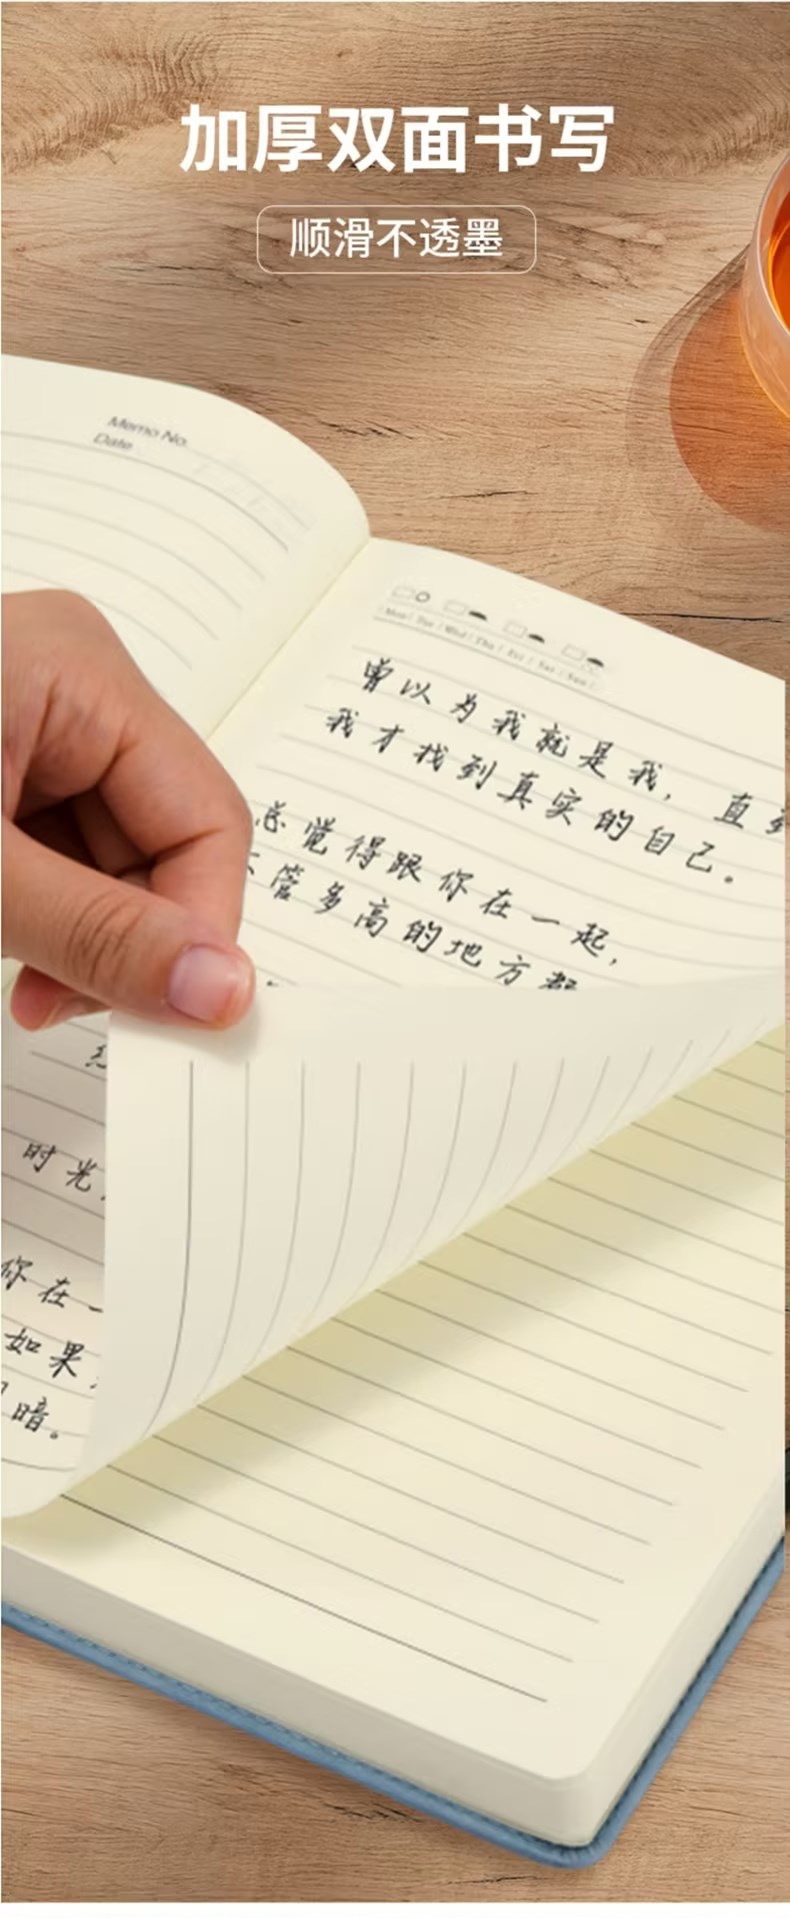 加厚双面书写
顺滑不透墨
Memo No.
Date
Mon Tue Wed Thu Fri Sat Sun
曾以为我就是我，直到
我才找到真实的自己。
总觉得跟你在一起，
不管多高的地方都
时光
你在一
如果
暗。